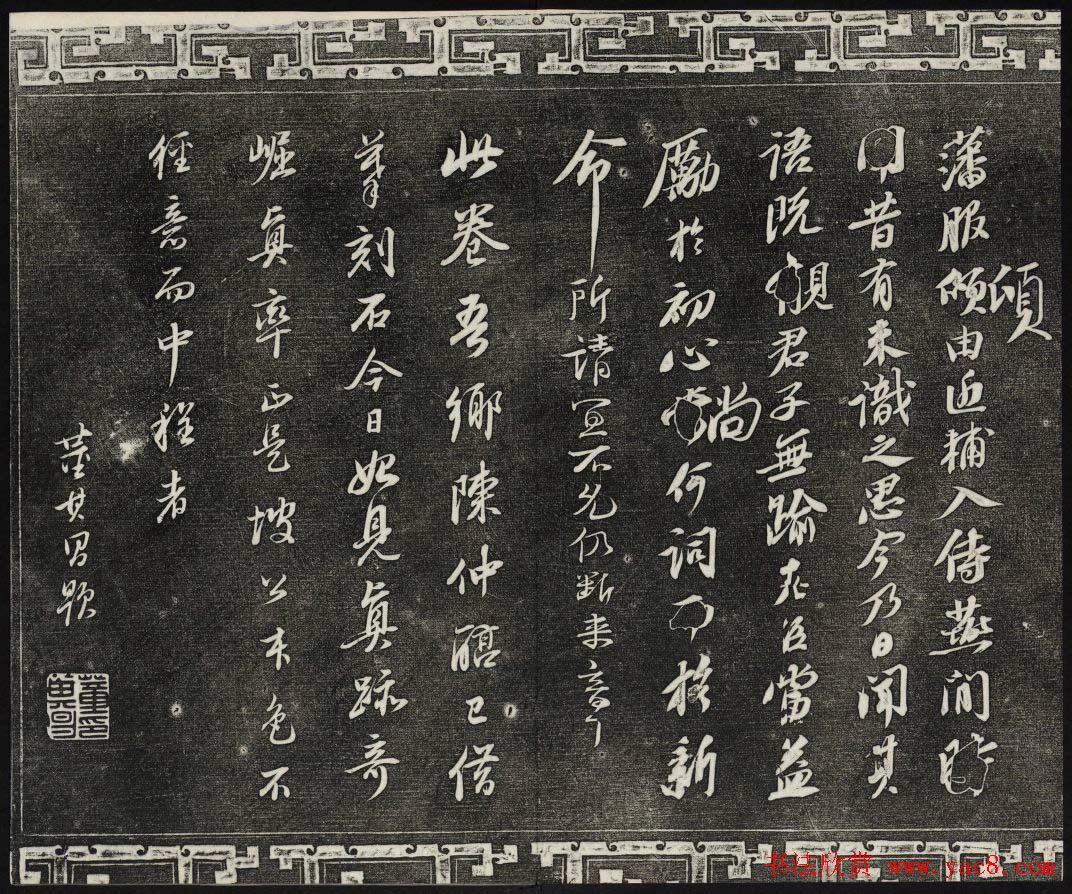 頃
藩服由近輔入侍燕閒時
昔有未識之思今乃日聞其
語既君子無踰老臣當益
勵於初心
尚
何詞而於新
命所請宜不允仍斷來章
此卷吾鄉陳仲醇已借
摹刻石今日始見真跡奇
崛真率正是坡公本色不
經意而中程者
董其昌題
董其昌印
书法欣赏 www.yac8.com